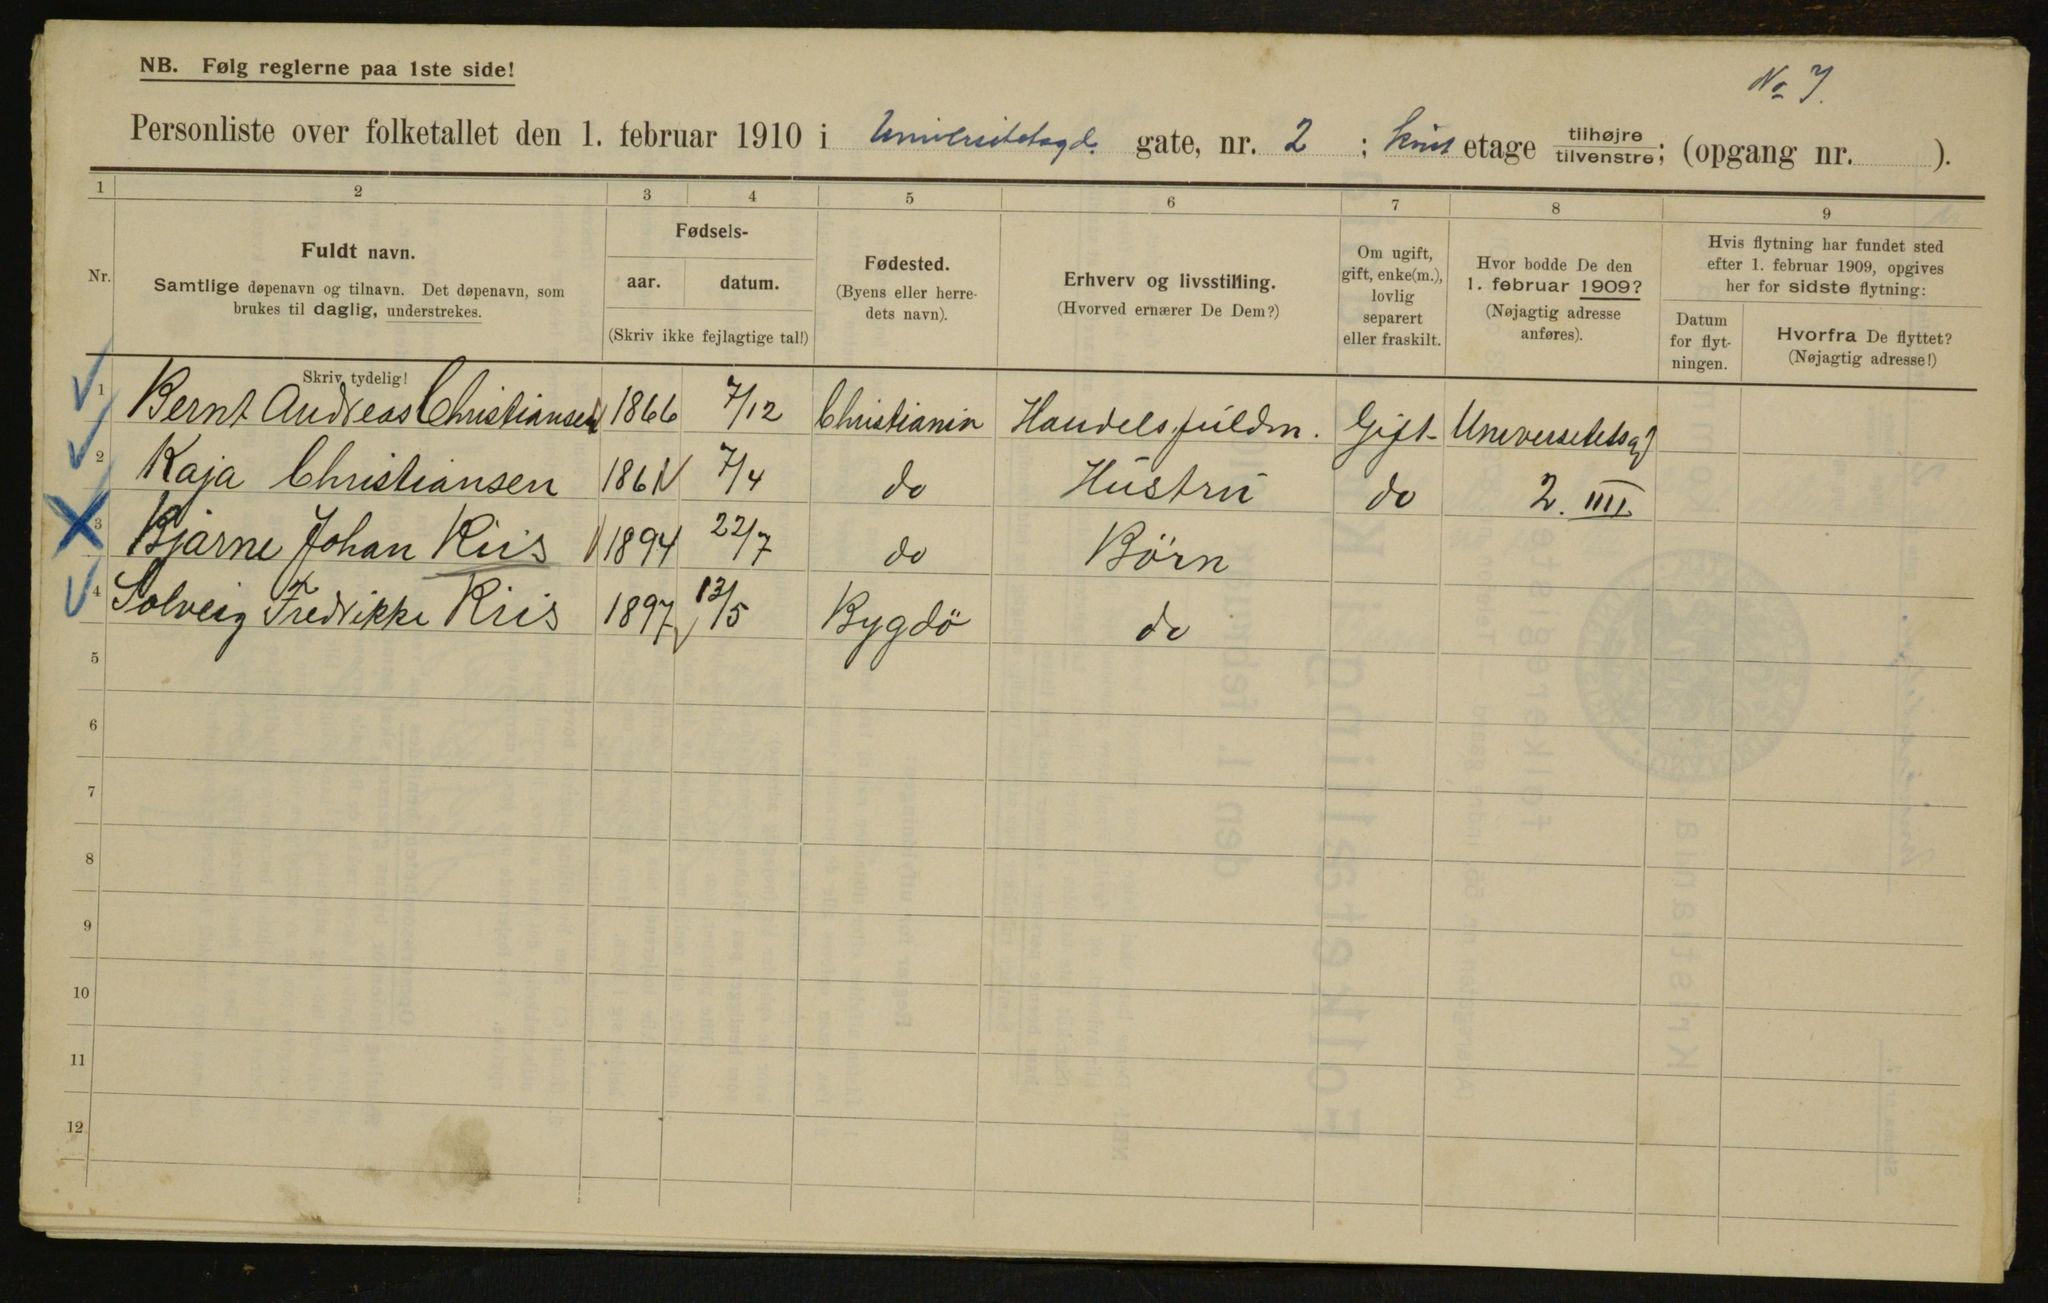 NB. Følg reglerne paa 1ste side!
No 7.
Personliste over folketallet den 1. februar 1910 i Universitetsgd. gate, nr. 2 ; kvist etage tilhøjre/tilvenstre; (opgang nr. ).
1 2 3 4 5 6 7 8 9
Nr.
Fuldt navn.
Samtlige døpenavn og tilnavn. Det døpenavn, som
brukes til daglig, understrekes.
Skriv tydelig!
Fødsels-
aar. datum.
(Skriv ikke fejlagtige tal!)
Fødested.
(Byens eller herre-
dets navn).
Erhverv og livsstilling.
(Hvorved ernærer De Dem?)
Om ugift,
gift, enke(m.),
lovlig
separert
eller fraskilt.
Hvor bodde De den
1. februar 1909?
(Nøjagtig adresse
anføres).
Hvis flytning har fundet sted
efter 1. februar 1909, opgives
her for sidste flytning:
Datum
for flyt-
ningen.
Hvorfra De flyttet?
(Nøjagtig adresse!)
1 Bernt Andreas Christiansen 1866 7/12 Christiania Handelsfuldm. Gift Universitetsg
2 Kaja Christiansen 1861 7/4 do Hustru do 2. IIII
3 Bjarne Johan Riis 1894 22/7 do Børn
4 Solveig Fredrikke Riis 1897 13/5 Bygdö do
5
6
7
8
9
10
11
12